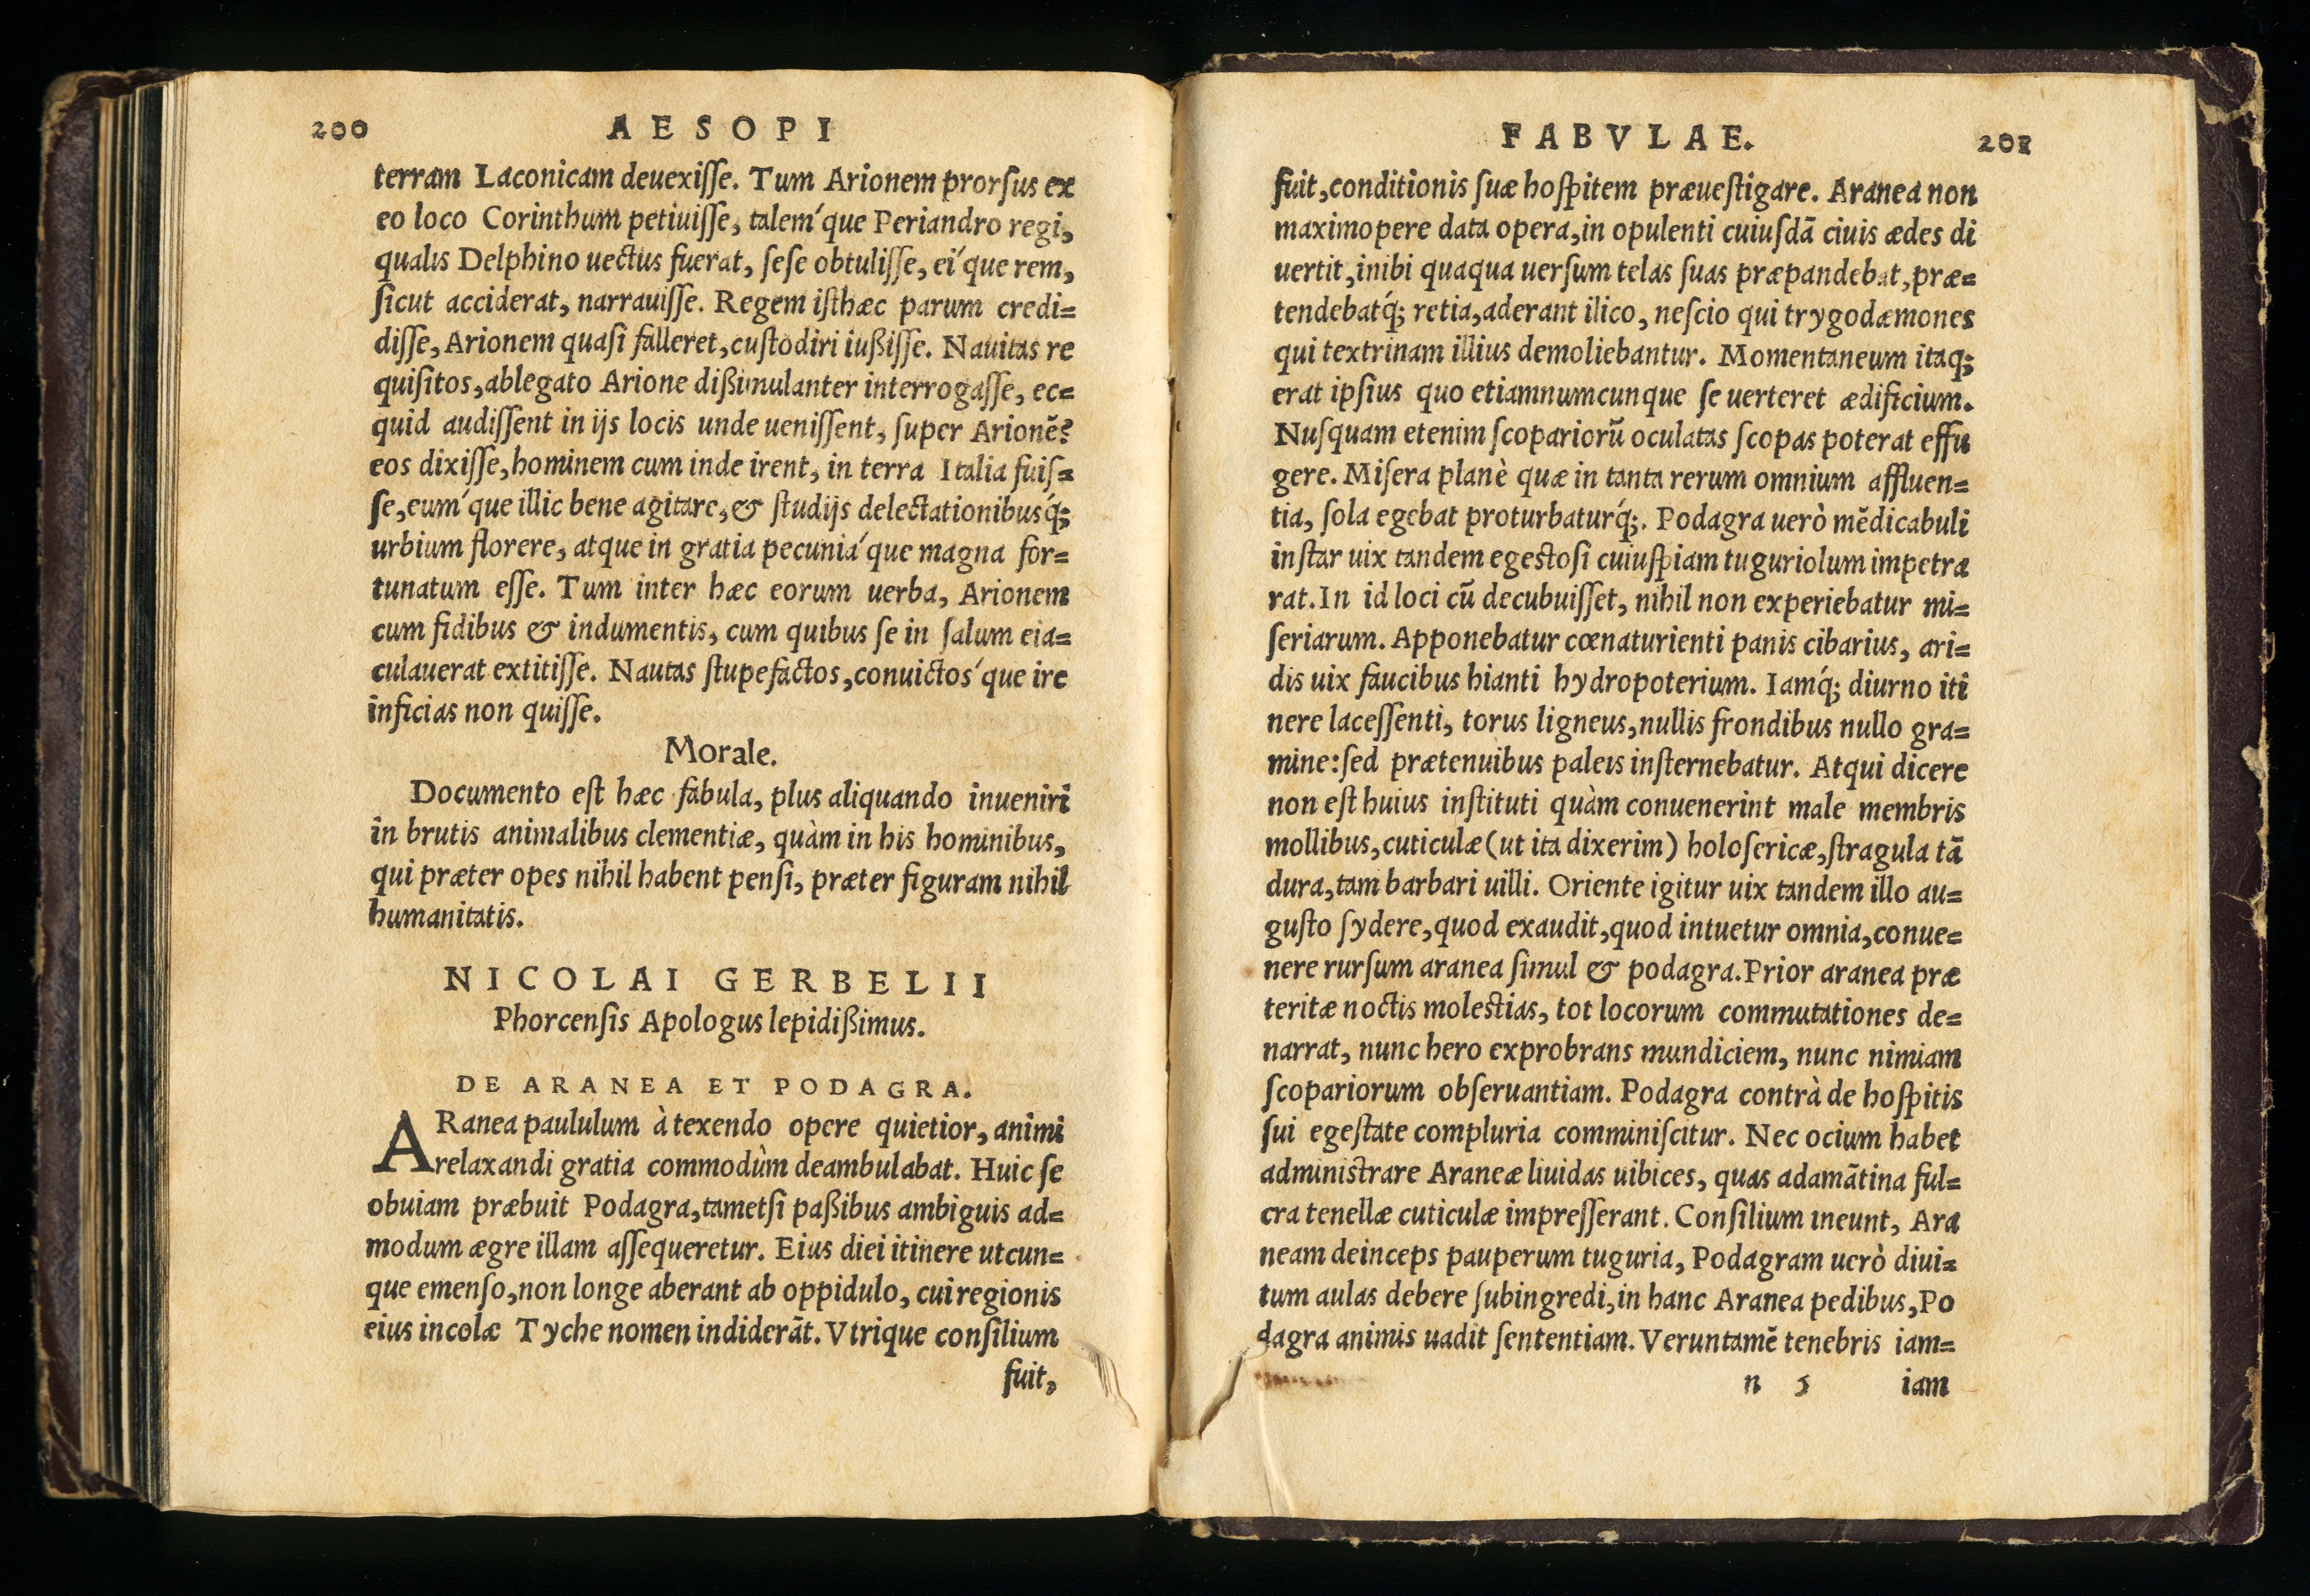 200 AESOPI
terram Laconicam deuexiſſe. Tum Arionem prorſus ex
eo loco Corinthum petiuiſſe, talem´que Periandro regi,
qualis Delphino uectus fuerat, ſeſe obtuliſſe, ei´que rem,
ſicut acciderat, narrauiſſe. Regem iſthæc parum credi=
diſſe, Arionem quaſi falleret, cuſtodiri iußiſſe. Nauitas re
quiſitos, ablegato Arione dißimulanter interrogaſſe, ec=
quid audiſſent in ijs locis unde ueniſſent, ſuper Arionē?
eos dixiſſe, hominem cum inde irent, in terra Italia fuiſ=
ſe, eum´que illic bene agitare, & ſtudijs delectationibusq́;
urbium florere, atque in gratia pecunia´que magna for=
tunatum eſſe. Tum inter hæc eorum uerba, Arionem
cum fidibus & indumentis, cum quibus ſe in ſalum eia=
culauerat extitiſſe. Nautas ſtupefactos, conuictos´que ire
inficias non quiſſe.
Morale.
Documento eſt hæc fabula, plus aliquando inueniri
in brutis animalibus clementiæ, quàm in his hominibus,
qui præter opes nihil habent penſi, præter figuram nihil
humanitatis.
NICOLAI GERBELII
Phorcenſis Apologus lepidißimus.
DE ARANEA ET PODAGRA.
ARanea paululum à texendo opere quietior, animi
relaxandi gratia commodùm deambulabat. Huic ſe
obuiam præbuit Podagra, tametſi paßibus ambiguis ad=
modum ægre illam aſſequeretur. Eius diei itinere utcun=
que emenſo, non longe aberant ab oppidulo, cui regionis
eius incolæ Tyche nomen indiderāt. Vtrique conſilium
fuit,
FABVLAE. 201
fuit, conditionis ſuæ hoſpitem præueſtigare. Aranea non
maximopere data opera, in opulenti cuiuſdā ciuis ædes di
uertit, inibi quaqua uerſum telas ſuas præpandebat, præ=
tendebatq́; retia, aderant ilico, neſcio qui trygodæmones
qui textrinam illius demoliebantur. Momentaneum itaq;
erat ipſius quo etiamnumcunque ſe uerteret ædificium.
Nuſquam etenim ſcoparioru̅ oculatas ſcopas poterat effu
gere. Miſera planè quæ in tanta rerum omnium affluen=
tia, ſola egebat proturbaturq́;. Podagra uerò mēdicabuli
inſtar uix tandem egestoſi cuiuſpiam tuguriolum impetra
rat. In id loci cu̅ decubuiſſet, nihil non experiebatur mi=
ſeriarum. Apponebatur cœnaturienti panis cibarius, ari=
dis uix faucibus hianti hydropoterium. Iamq́; diurno iti
nere laceſſenti, torus ligneus, nullis frondibus nullo gra=
mine: ſed prætenuibus paleis inſternebatur. Atqui dicere
non eſt huius inſtituti quàm conuenerint male membris
mollibus, cuticulæ (ut ita dixerim) holoſericæ, ſtragula tā
dura, tam barbari uilli. Oriente igitur uix tandem illo au=
guſto ſydere, quod exaudit, quod intuetur omnia, conue=
nere rurſum aranea ſimul & podagra. Prior aranea præ
teritæ noctis moleſtias, tot locorum commutationes de=
narrat, nunc hero exprobrans mundiciem, nunc nimiam
ſcopariorum obſeruantiam. Podagra contrà de hoſpitis
ſui egeſtate compluria comminiſcitur. Nec ocium habet
adminiſtrare Araneæ liuidas uibices, quas adamātina ful=
cra tenellæ cuticulæ impreſſerant. Conſilium ineunt, Ara
neam deinceps pauperum tuguria, Podagram uerò diui=
tum aulas debere ſubingredi, in hanc Aranea pedibus, Po
dagra animis uadit ſententiam. Veruntamē tenebris iam=
n 5 iam